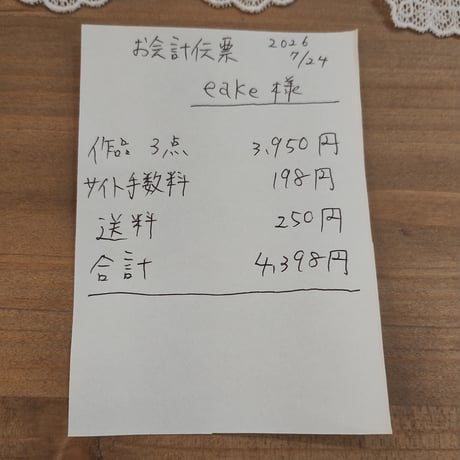 お会計伝票 2026 7/24
eake 様
作品 3点 3,950円
サイト手数料 198円
送料 250円
合計 4,398円